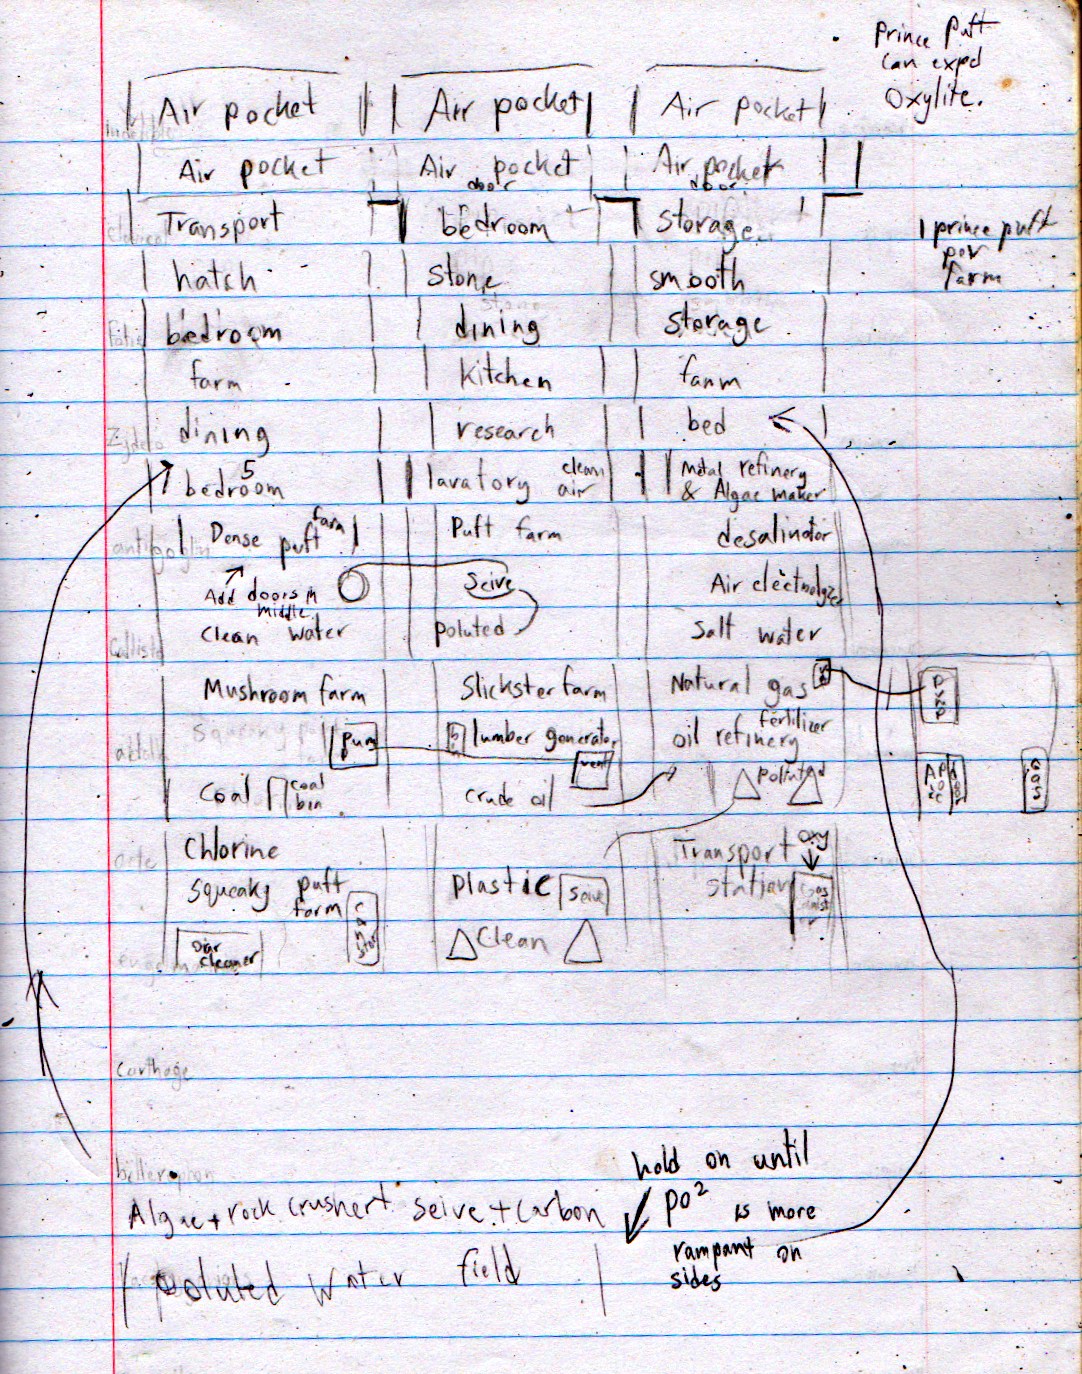 Prince Puft
can exped
Oxylite.
Air pocket Air pocket Air pocket
Air pocket Air pocket Air pocket
door door
Transport bedroom storage
1 prince puft
por
farm
hatch stone smooth
bedroom dining storage
farm kitchen farm
dining research bed
bedroom 5 lavatory clean air Metal refinery
& Algae maker
Dense puft farm Puft farm desalinator
Add doors in
middle
Seive Air electrolyzer
Clean water Poluted Salt water
Mushroom farm Slickster farm Natural gas
Pum lumber generator fertilizer
oil refinery
vent
Coal coal
bin crude oil Poluted
Gas
Chlorine Transport oxy
Squeaky puft
farm Plastic Seive Station
Clean
cleaner
Carthage
bellerophon
hold on until
Algae + rock crusher + Seive + Carbon PO² is more
rampant on
sides
poluted Water field